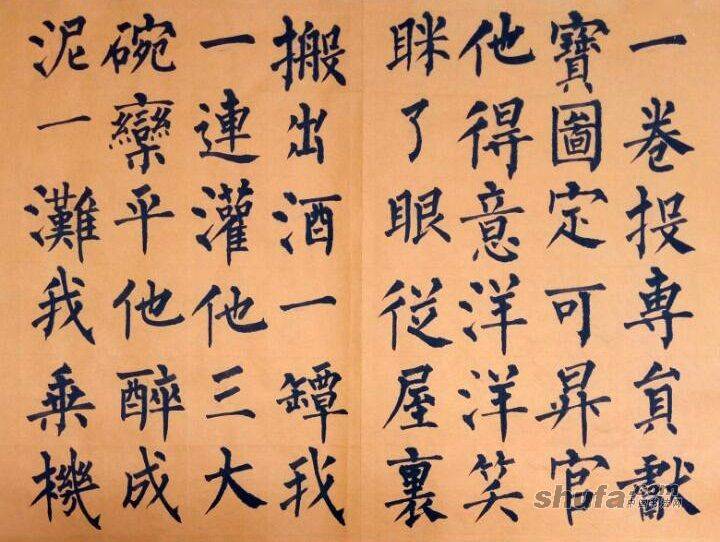 一卷投専員獻
寶圖定可昇官
他得意洋洋笑
眯了眼從屋裏
搬出酒一罈我
一連灌他三大
碗欒平他醉成
泥一灘我乘機
shufa